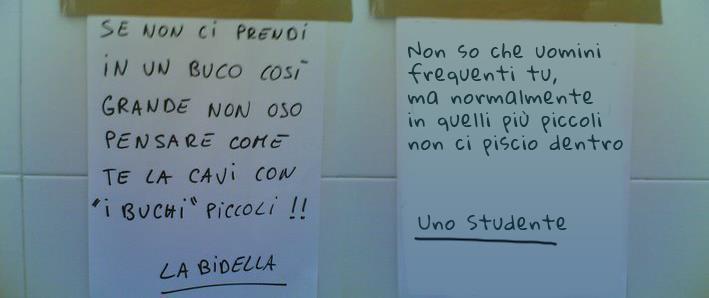 SE NON Ci PRENDi
iN UN BUCO COSI'
GRANDE NON OSO
PENSARE COME
TE LA CAVi CON
"i BUCHi" PiCCOLi !!
LA BiDELLA
Non so che uomini
frequenti tu,
ma normalmente
in quelli più piccoli
non ci piscio dentro
Uno Studente